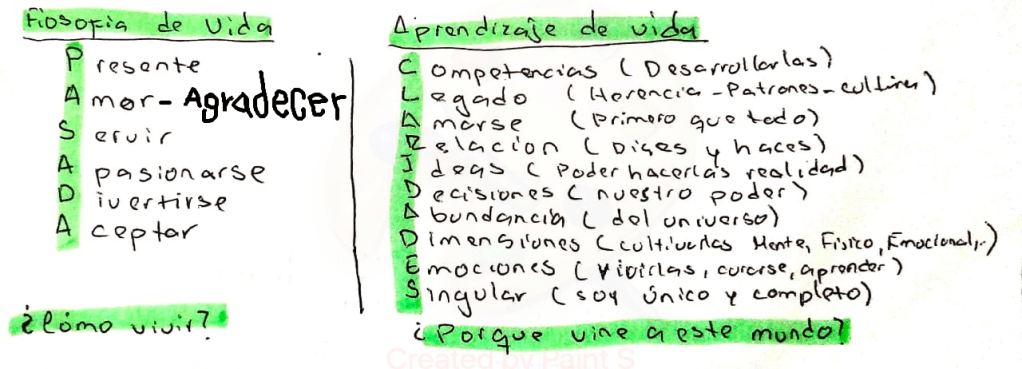 Fiosofia de vida
Presente
Amor - Agradecer
Servir
Apasionarse
Divertirse
Aceptar
¿Cómo vivir?
Aprendizaje de vida
Competencias (Desarrollarlas)
Legado (Herencia - Patrones - cultura)
Amarse (primero que todo)
Relacion (Dices y haces)
Ideas (Poder hacerlas realidad)
Decisiones (nuestro poder)
Abundancia (del universo)
Dimensiones (cultivarlas Mente, Fisico, Emocional,..)
Emociones (vivirlas, curarse, aprender)
Singular (soy único y completo)
¿Porque vine a este mundo?
Created by Paint S